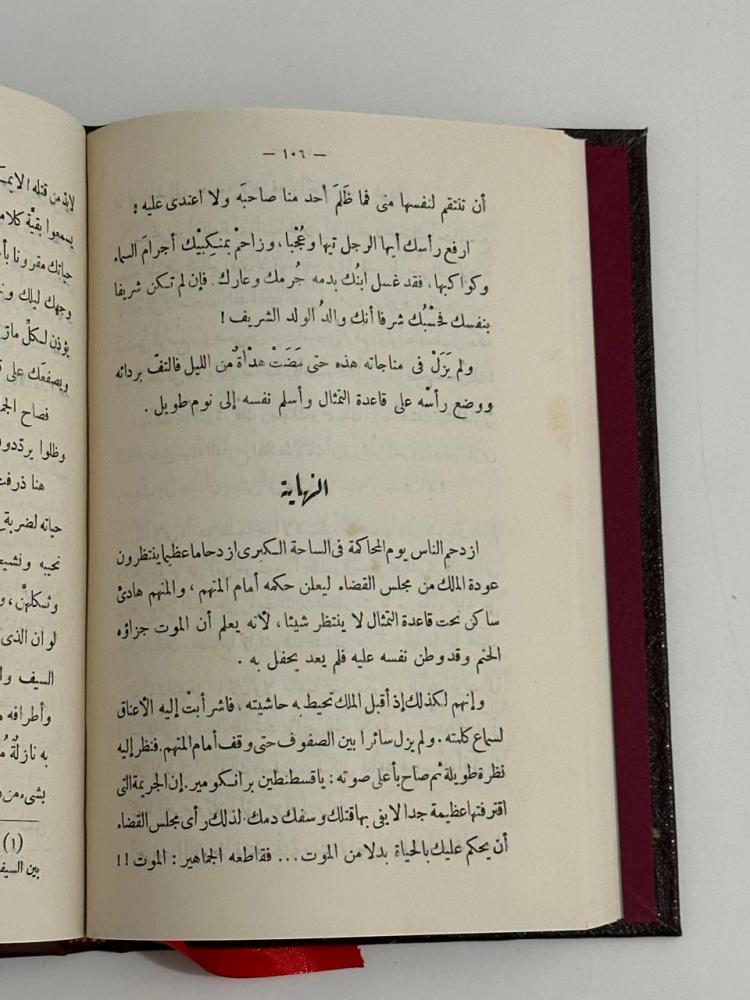 — ١٠٦ —
أن تنتقم لنفسها منى فما ظَلَمَ أحد منا صاحبَه ولا اعتدى عليه ؛
ارفع رأسك أيها الرجل تيها وعُجْبا، وزاحمْ بمنكِبيْك أجرامَ السماء
وكواكبها، فقد غسل ابنُك بدمه جُرمك وعارك. فإن لم تكن شريفا
بنفسك فحَسْبُك شرفا أنك والدُ الولد الشريف !
ولم يَزَلْ فى مناجاته هذه حتى مَضَتْ هدْأةٌ من الليل فالتفّ بردائه
ووضع رأسْه على قاعدة التمثال وأسلم نفسه إلى نوم طويل .
النهاية
ازدحم الناس يوم المحاكمة فى الساحة الكبرى ازدحاما عظيما ينتظرون
عودة الملك من مجلس القضاء ليعلن حكمه أمام المتهم ، والمتهم هادئ
ساكن تحت قاعدة التمثال لا ينتظر شيئا ، لأنه يعلم أن الموت جزاؤه
الحتم وقد وطن نفسه عليه فلم يعد يحفل به .
وإنهم لكذلك إذ أقبل الملك تحيط به حاشيته ، فاشرأبتْ إليه الأعناق
لسماع كلمته . ولم يزل سائرا بين الصفوف حتى وقف أمام المتهم، فنظر إليه
نظرة طويلة ثم صاح بأعلى صوته : ياقسطنطين برانكومير. إن الجريمة التى
اقترفتها عظيمة جدا لايفى بها قتلك وسفك دمك لذلك رأى مجلس القضاء
أن يحكم عليك بالحياة بدلا من الموت ... فقاطعه الجماهير : الموت !!
لابد من قتله
يسمعوا بقيّة
حياتك مقرونا
وجهك ليلك
يؤذن لكلّ
ويصفعك على
فصاح
وظلوا يردّدون
هنا ذرفت
حياته لضربة
نحيبه
لو ان الذى
السيف
وأطرافه
به نازلةٌ
بشىء من
(١)
بين السيف